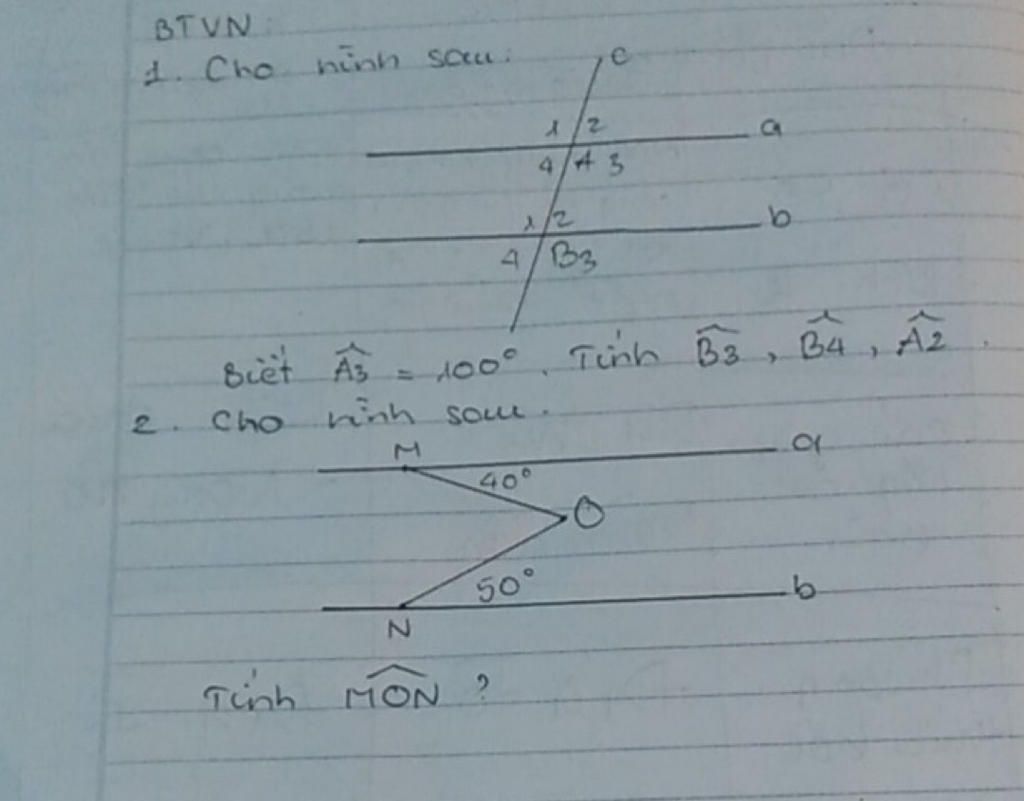 BTVN:
1. Cho hình sau:
c
1 2 a
4 A 3
1 2 b
4 B3
Biết Â3 = 100°. Tính B̂3, B̂4, Â2.
2. Cho hình sau.
M a
40°
O
50° b
N
Tính M̂ÔN̂ ?